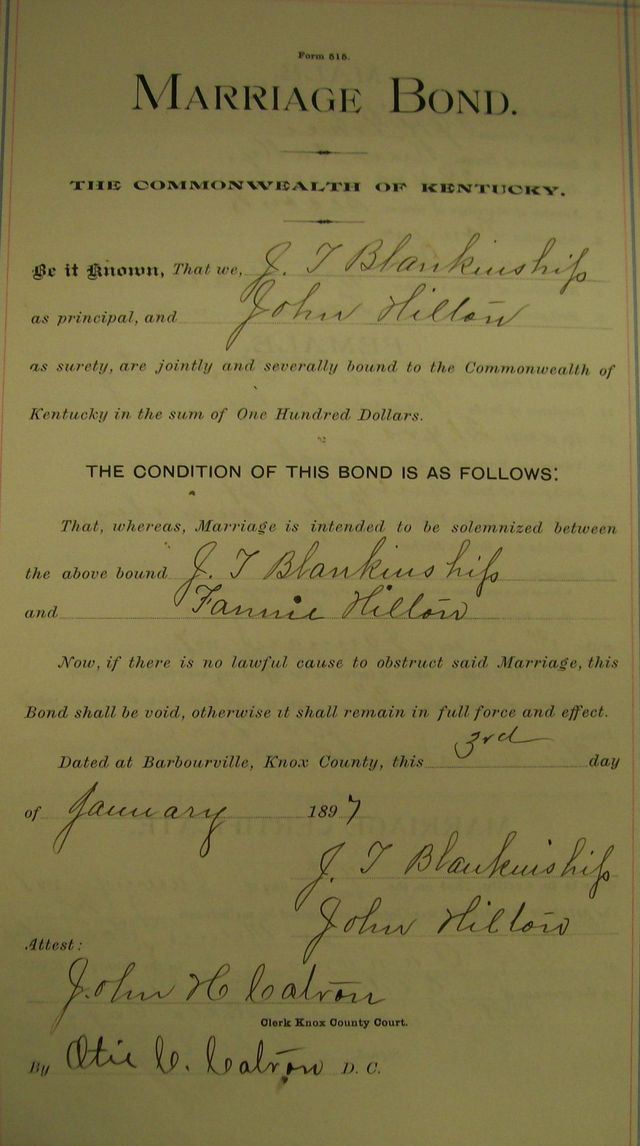 Form 515.
MARRIAGE BOND.
THE COMMONWEALTH OF KENTUCKY.
Be it Known, That we, J. T Blankinship
as principal, and John Hilton
as surety, are jointly and severally bound to the Commonwealth of
Kentucky in the sum of One Hundred Dollars.
THE CONDITION OF THIS BOND IS AS FOLLOWS:
That, whereas, Marriage is intended to be solemnized between
the above bound J. T Blankinship
and Fannie Hilton
Now, if there is no lawful cause to obstruct said Marriage, this
Bond shall be void, otherwise it shall remain in full force and effect.
Dated at Barbourville, Knox County, this 3rd day
of January 1897
J. T Blankinship
John Hilton
Attest:
John H Catron
Clerk Knox County Court.
By Otie C. Catron D. C.